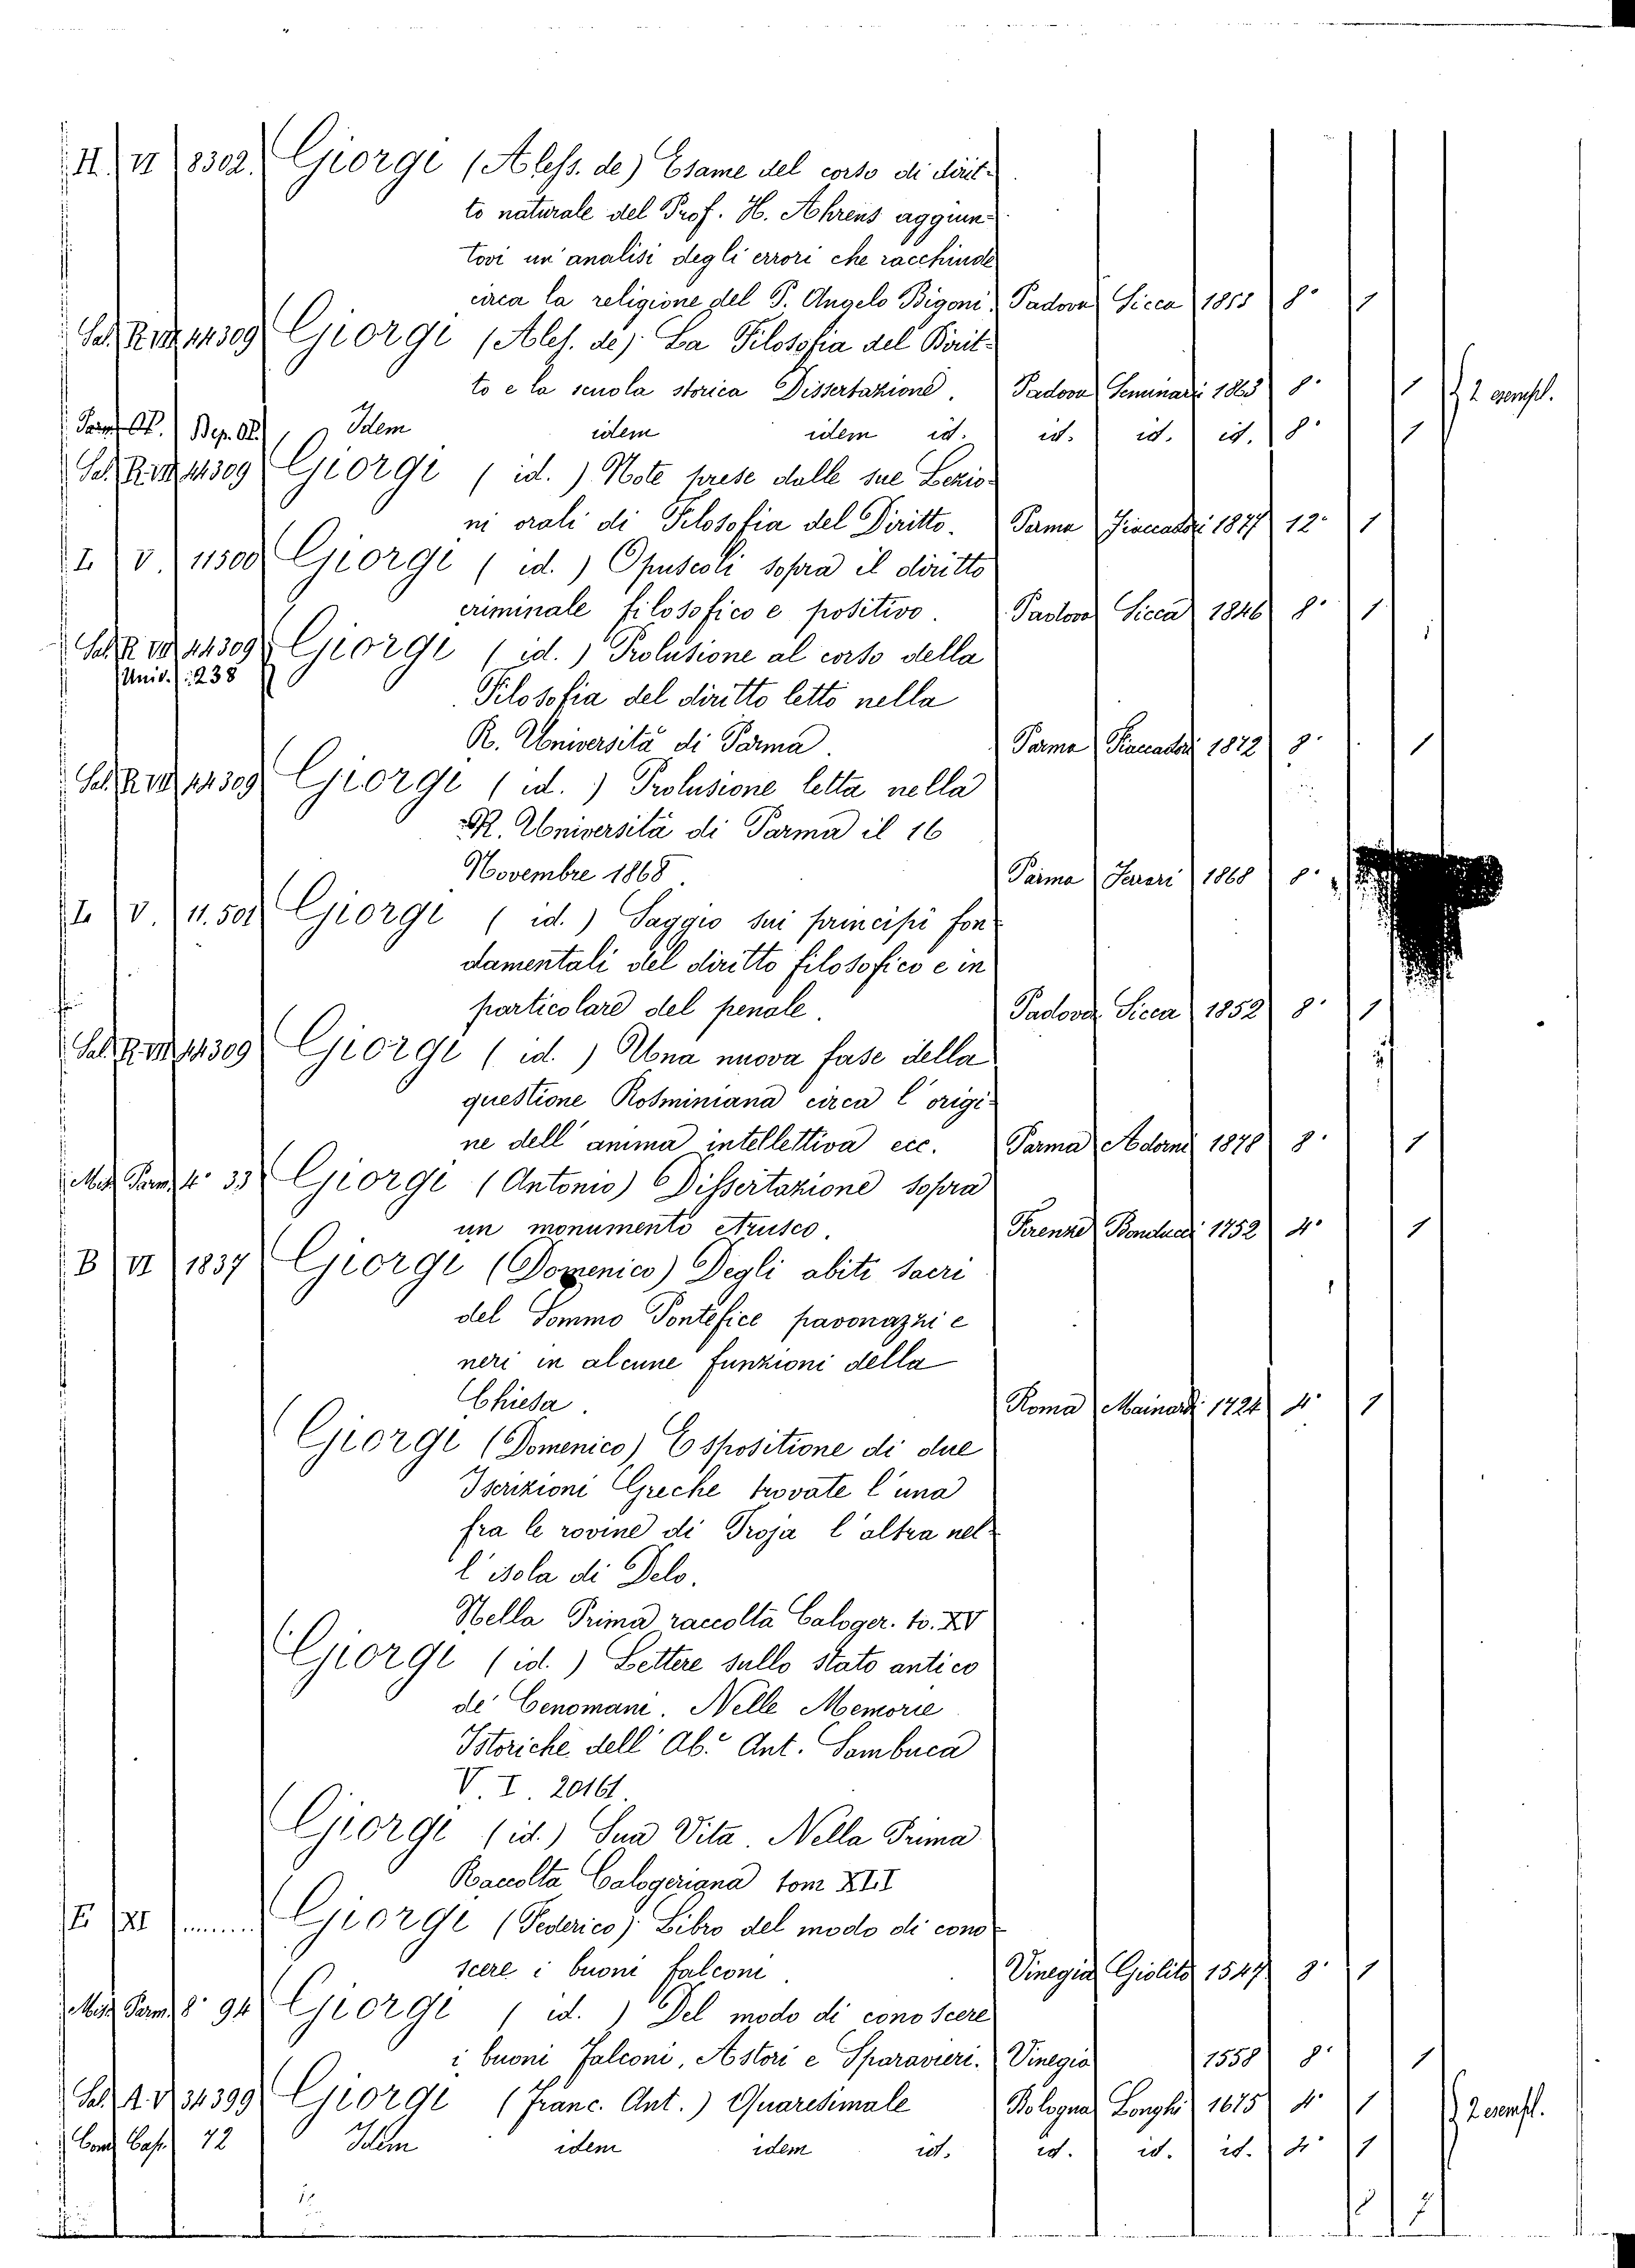 II. VI 8302. Giorgi (Aless. de) Esame del corso di dirit-
to naturale del Prof. H. Ahrens aggiun-
tovi un' analisi degli errori che racchiude
circa la religione del P. Angelo Bigoni. Padova Sicca 8° 1
44309 Giorgi (Aless. de). La Filosofia del Dirit-
to e la scuola storica Dissertazione. Padova Seminario 1863 8° 1 2 esempl.
Dep. Idem idem idem id. id. id. id. 8° 1
44309 Giorgi (id.) Note prese dalle sue Lezio-
ni orali di Filosofia del Diritto. Parma Fiaccadori 12° 1
I. V. 11500 Giorgi (id.) Opuscoli sopra il diritto
criminale filosofico e positivo. Padova Sicca 1846 8° 1
44309 Giorgi (id.) Prolusione al corso della
Univ. 238
Filosofia del diritto letto nella
R. Università di Parma. Parma Fiaccadori 1872 8° 1
44309 Giorgi (id.) Prolusione letta nella
R. Università di Parma il 16
Novembre 1868. Parma Ferrari 1868 8°
I. V. 11.501 Giorgi (id.) Saggio sui principii fon-
damentali del diritto filosofico e in
particolare del penale. Padova Sicca 1852 8° 1
44309 Giorgi (id.) Una nuova fase della
questione Rosminiana circa l' origi-
ne dell' anima intellettiva ecc. Parma Adorni 1878 8° 1
Misc. Parm. 4° 33 Giorgi (Antonio) Dissertazione sopra
un monumento etrusco. Firenze Bonducci 1752 4° 1
B VI 1837 Giorgi (Domenico) Degli abiti sacri
del Sommo Pontefice pavonazzi e
neri in alcune funzioni della
Chiesa. Roma Mainardi 1724 4° 1
Giorgi (Domenico) Espositione di due
Iscrizioni Greche trovate l' una
fra le rovine di Troja l' altra nel-
l' isola di Delo.
Nella Prima raccolta Caloger. to. XV
Giorgi (id.) Lettere sullo stato antico
de' Cenomani. Nelle Memorie
Istoriche dell' Ab.e Ant. Sambuca
V. I. 20161.
Giorgi (id.) Sua Vita. Nella Prima
Raccolta Calogeriana tom XLI
E XI ........ Giorgi (Federico). Libro del modo di cono-
scere i buoni falconi. Vinegia Giolito 1547 8° 1
Misc. Parm. 8° 94 Giorgi (id.) Del modo di conoscere
i buoni Falconi, Astori e Sparavieri. Vinegia 1558 8° 1
34399 Giorgi (Franc. Ant.) Quaresimale Bologna Longhi 1675 4° 1 2 esempl.
72 Idem idem idem id. id. id. id. 4° 1